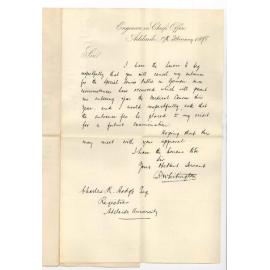 Engineer in Chief's Office
Adelaide 17th February 1898
Sir
I have the honor to beg
respectfully that you will cancel my entrance
for the special Senior Public in October since
circumstances have occurred which will prevent
me entering upon the Medical Course this
year, and I would respectfully ask that
the entrance fee be placed to my credit
for a future examination.
Hoping that this
may meet with your approval
I have the honour to be
Sir
Your Obedient Servant
Charles R. Hodge Esq
Registrar
Adelaide University